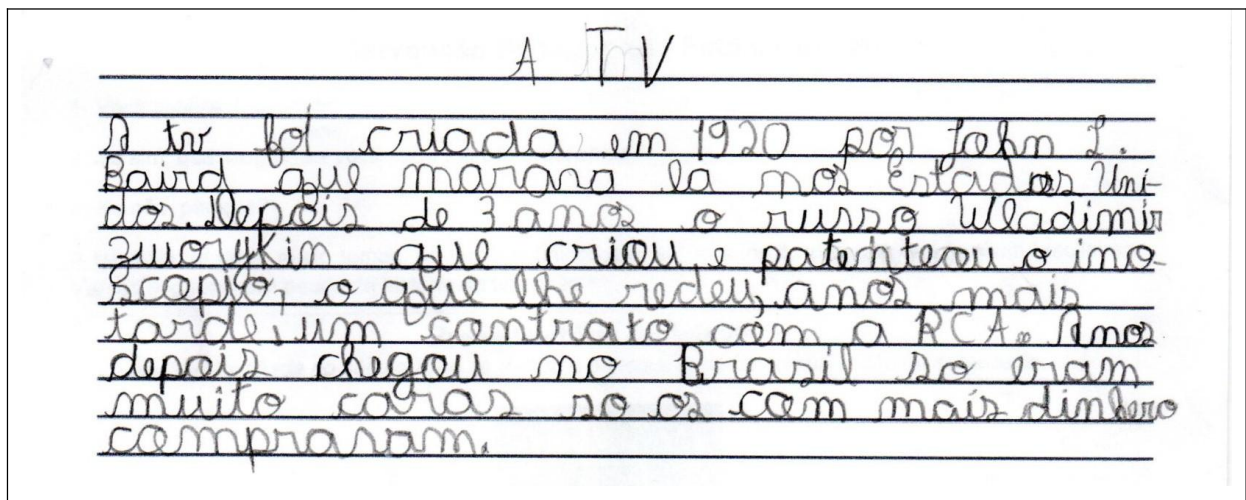 A TV
A tv foi criada em 1920 por John L.
Baird que marava la nos Estados Uni-
dos. Depois de 3 anos o russo Wladimir
zworykin que criou e patenteou o ino-
scopio, o que lhe redeu, anos mais
tarde, um contrato com a RCA. Anos
depois chegou no Brasil so eram
muito caras so os com mais dinhero
compravam.